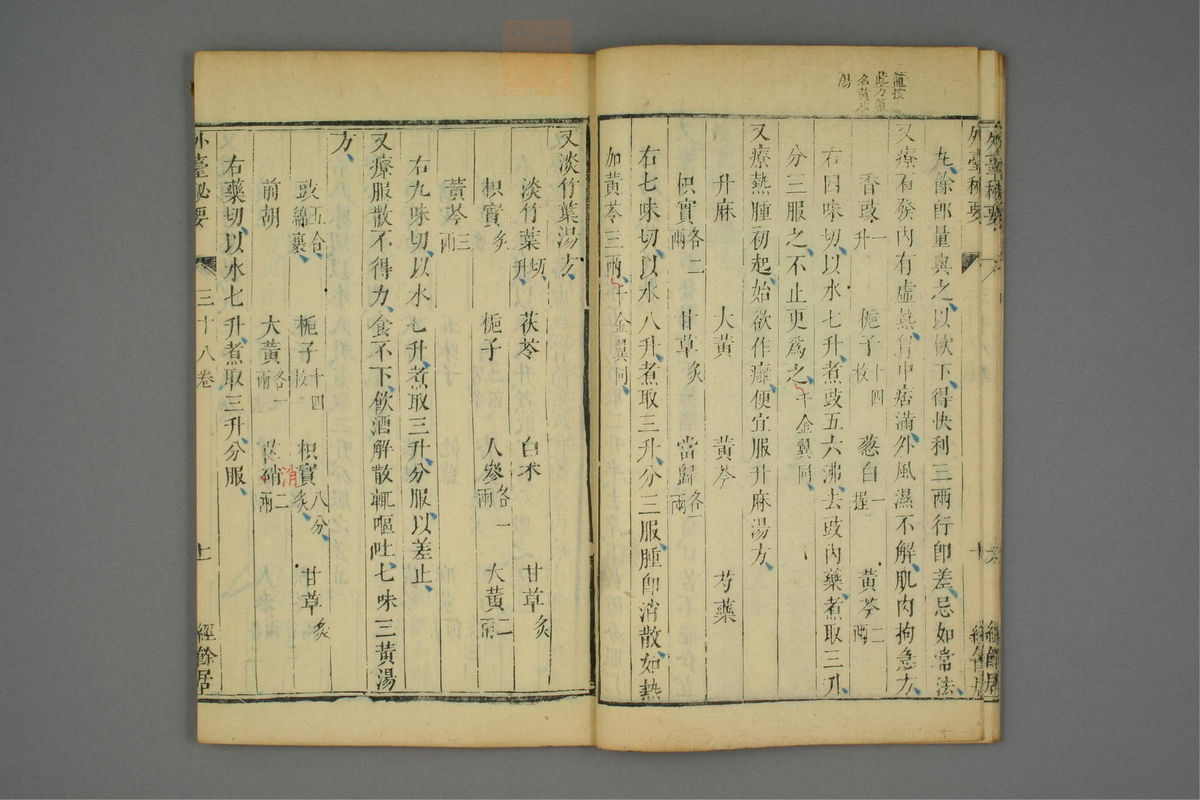 外臺秘要
經餘居
丸餘卽量與之以飲下得快利三兩行卽差忌如常法
又療石發內有虛熱胷中痞滿外風濕不解肌肉拘急方
香豉一升 梔子十四枚 葱白一握 黃芩二兩
右四味切以水七升煮豉五六沸去豉內藥煮取三升
分三服之不止更爲之千金翼同
又療熱腫初起始欲作癰便宜服升麻湯方
升麻 大黃 黃芩 芍藥
枳實各二兩 甘草炙 當歸各一兩
右七味切以水八升煮取三升分三服腫卽消散如熱
加黃芩三兩千金翼同
此方翼
名黃芩
湯
又淡竹葉湯方
淡竹葉切一升 茯苓 白朮 甘草炙
枳實炙 梔子 人參各一兩 大黃二兩
黃芩三兩
右九味切以水七升煮取三升分服以差止
又療服散不得力食不下飲酒解散輒嘔吐七味三黃湯
方
豉五合綿裹 梔子十四枚 枳實八分炙 甘草炙
前胡 大黃各一兩 芒硝二兩
消
右藥切以水七升煮取三升分服
外臺秘要 三十八卷 十一 經餘居